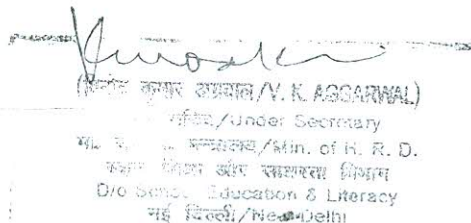 (विनोद कुमार अग्रवाल/V. K. AGGARWAL)
सचिव/Under Secretary
मा. सं. मन्त्रालय/Min. of H. R. D.
शिक्षा और साक्षरता विभाग
D/o School Education & Literacy
नई दिल्ली/New Delhi